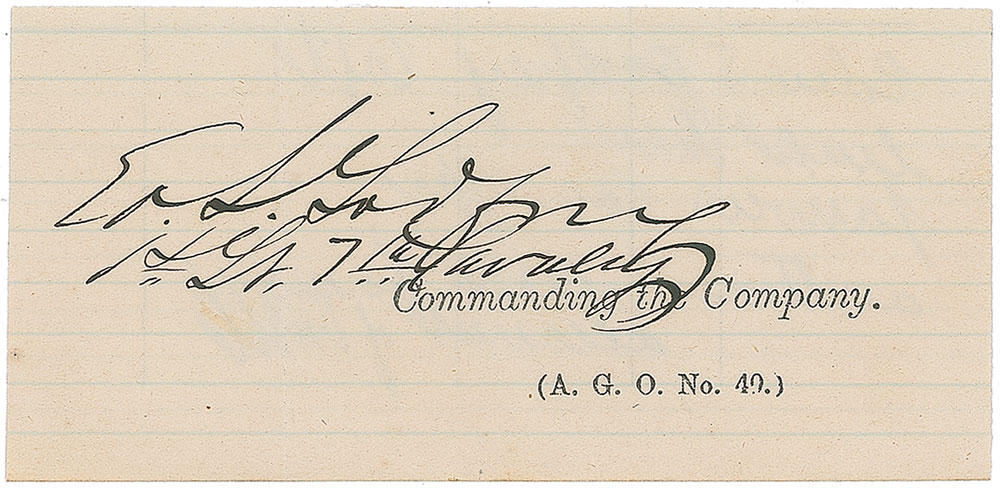 E. S. Godfrey
1st Lt. 7th Cavalry
Commanding the Company.
(A. G. O. No. 40.)